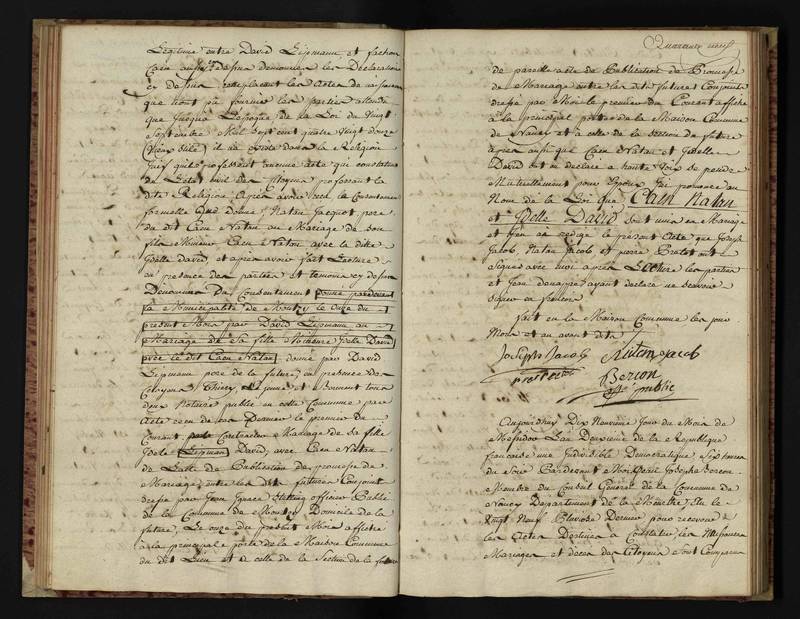 Legitime entre David Lipmann et
Caën demeurier les Declarations
remplaçant les actes de naissance
que n'ont pû fournir les parties attendu
que Jusqua L'epoque de la Loi du Vingt
Septembre Mil Sept cent quatre Vingt douze
(Vieux Stile) il na existé dans la Religion
Juif quils professent aucune acte qui constatent
de L'etat civil des Citoyens professant la
dite Religion. Après avoir le Consentement
formelle que donne Natan Jacob, pere
du dit Caën Natan au Mariage de son
fils Mineur Caën Natan avec la dite
Idelle David, et après avoir fait Lecture
en presence des parties et temoins cy dessus
Dénommés Du Consentement donné pardevant
la Municipalité de le Onze du
present Mois par David Lipmann au
Mariage de Sa fille Mineure Idelle David
avec le dit Caën Natan donné par David
Lipmann pere de la future, en presence des
Citoyens Thiery, Le jeune et tous
deux Notaire public en cette Commune par
acte de ce Dernier le premier du
Courant Mariage de Sa fille
Idelle Lipman David, avec Caën Natan
de L'acte de Publication de promesse de
Mariage entre les dits futures Conjoint
dressé par Jean Ignace officier Public
de la Commune de Domicile de la
future, Le onze du present Mois affiché
à la principale porte de la Maison Commune
du dit Lieu et a celle de la Section de la future
Quarante neuf
de pareille acte de Publication de Promesse
de Mariage entre les dits futures Conjoints
dressé par Moi le premier du Courant affiché
à la principal porte de la Maison Commune
de Nancy et à celle de la Section de future
après ainsi que Caen Natan et Idelle
David ont déclaré a haute Voix se prendre
Mutuellement pour Epoux J'ai prononcé au
Nom de la Loi que Caën Natan
et Idelle David sont unis en Mariage
et J'en ai redigé le present Acte que Joseph
Jacob, Natan Jacob et pierre ont
Signés avec moi après Lecture les parties
et Jean ayant déclaré ne savoir
Signer
fait en la Maison Commune les jour
Mois et an avant dits
Joseph Jacob Natan Jacob
Berson
off. public
Aujourdhuy Dix Neuvieme Jour du Mois de
Messidor L'an Deuxieme de la Republique
française une Indivisible Democratique, Sept heures
du Soir Pardevant Moi Joseph Berson
Membre du Conseil General de la Commune de
Nancy Departement de la Meurthe, Elu le
Vingt Neuf Pluviose Dernier pour recevoir
les Actes Destinés à Constater les Naissances
Mariages et décès des Citoyens sont Comparus